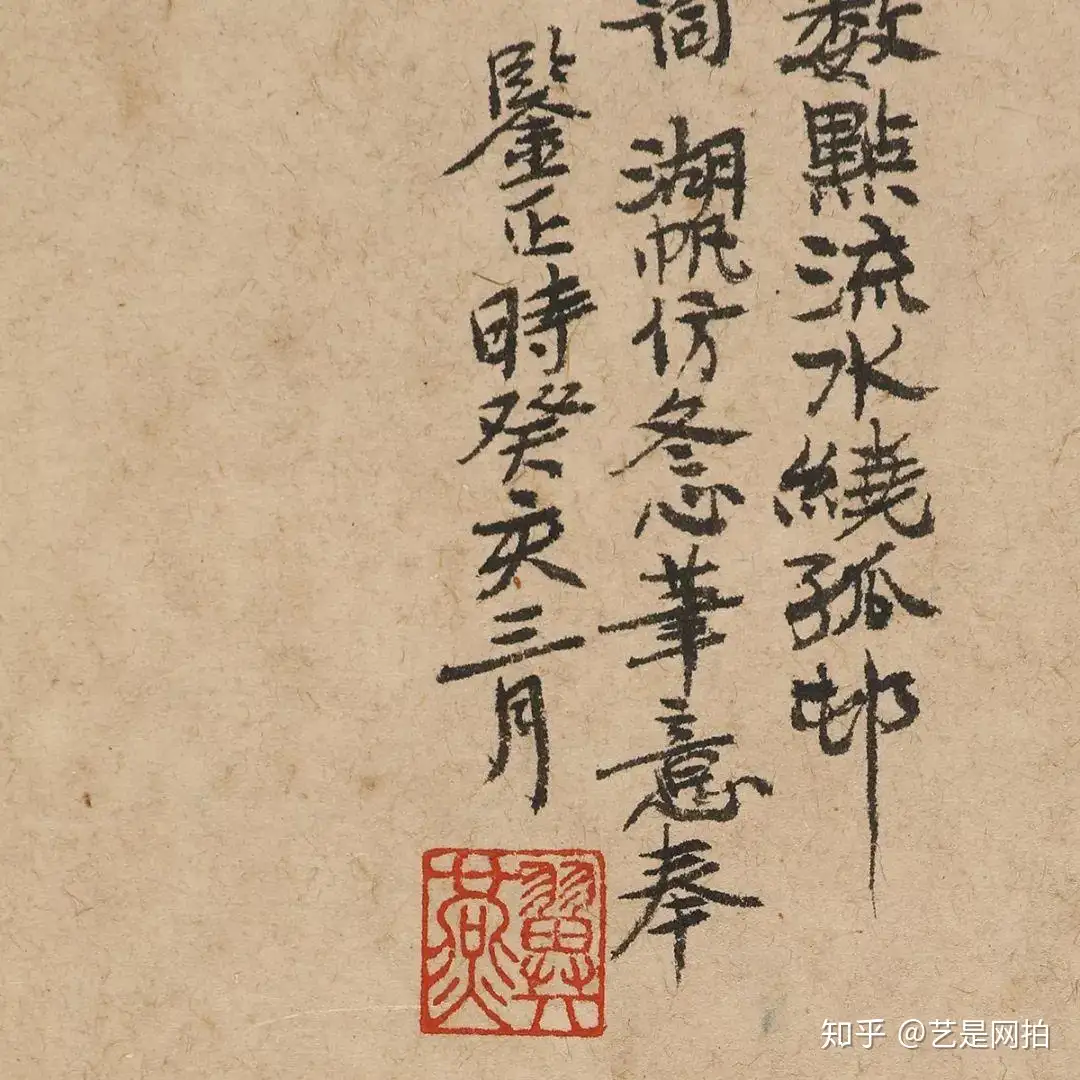 數點流水繞孤邨
詞 湖帆仿冬心筆意奉
鑒正時癸亥三月
翼燕
知乎 @艺是网拍